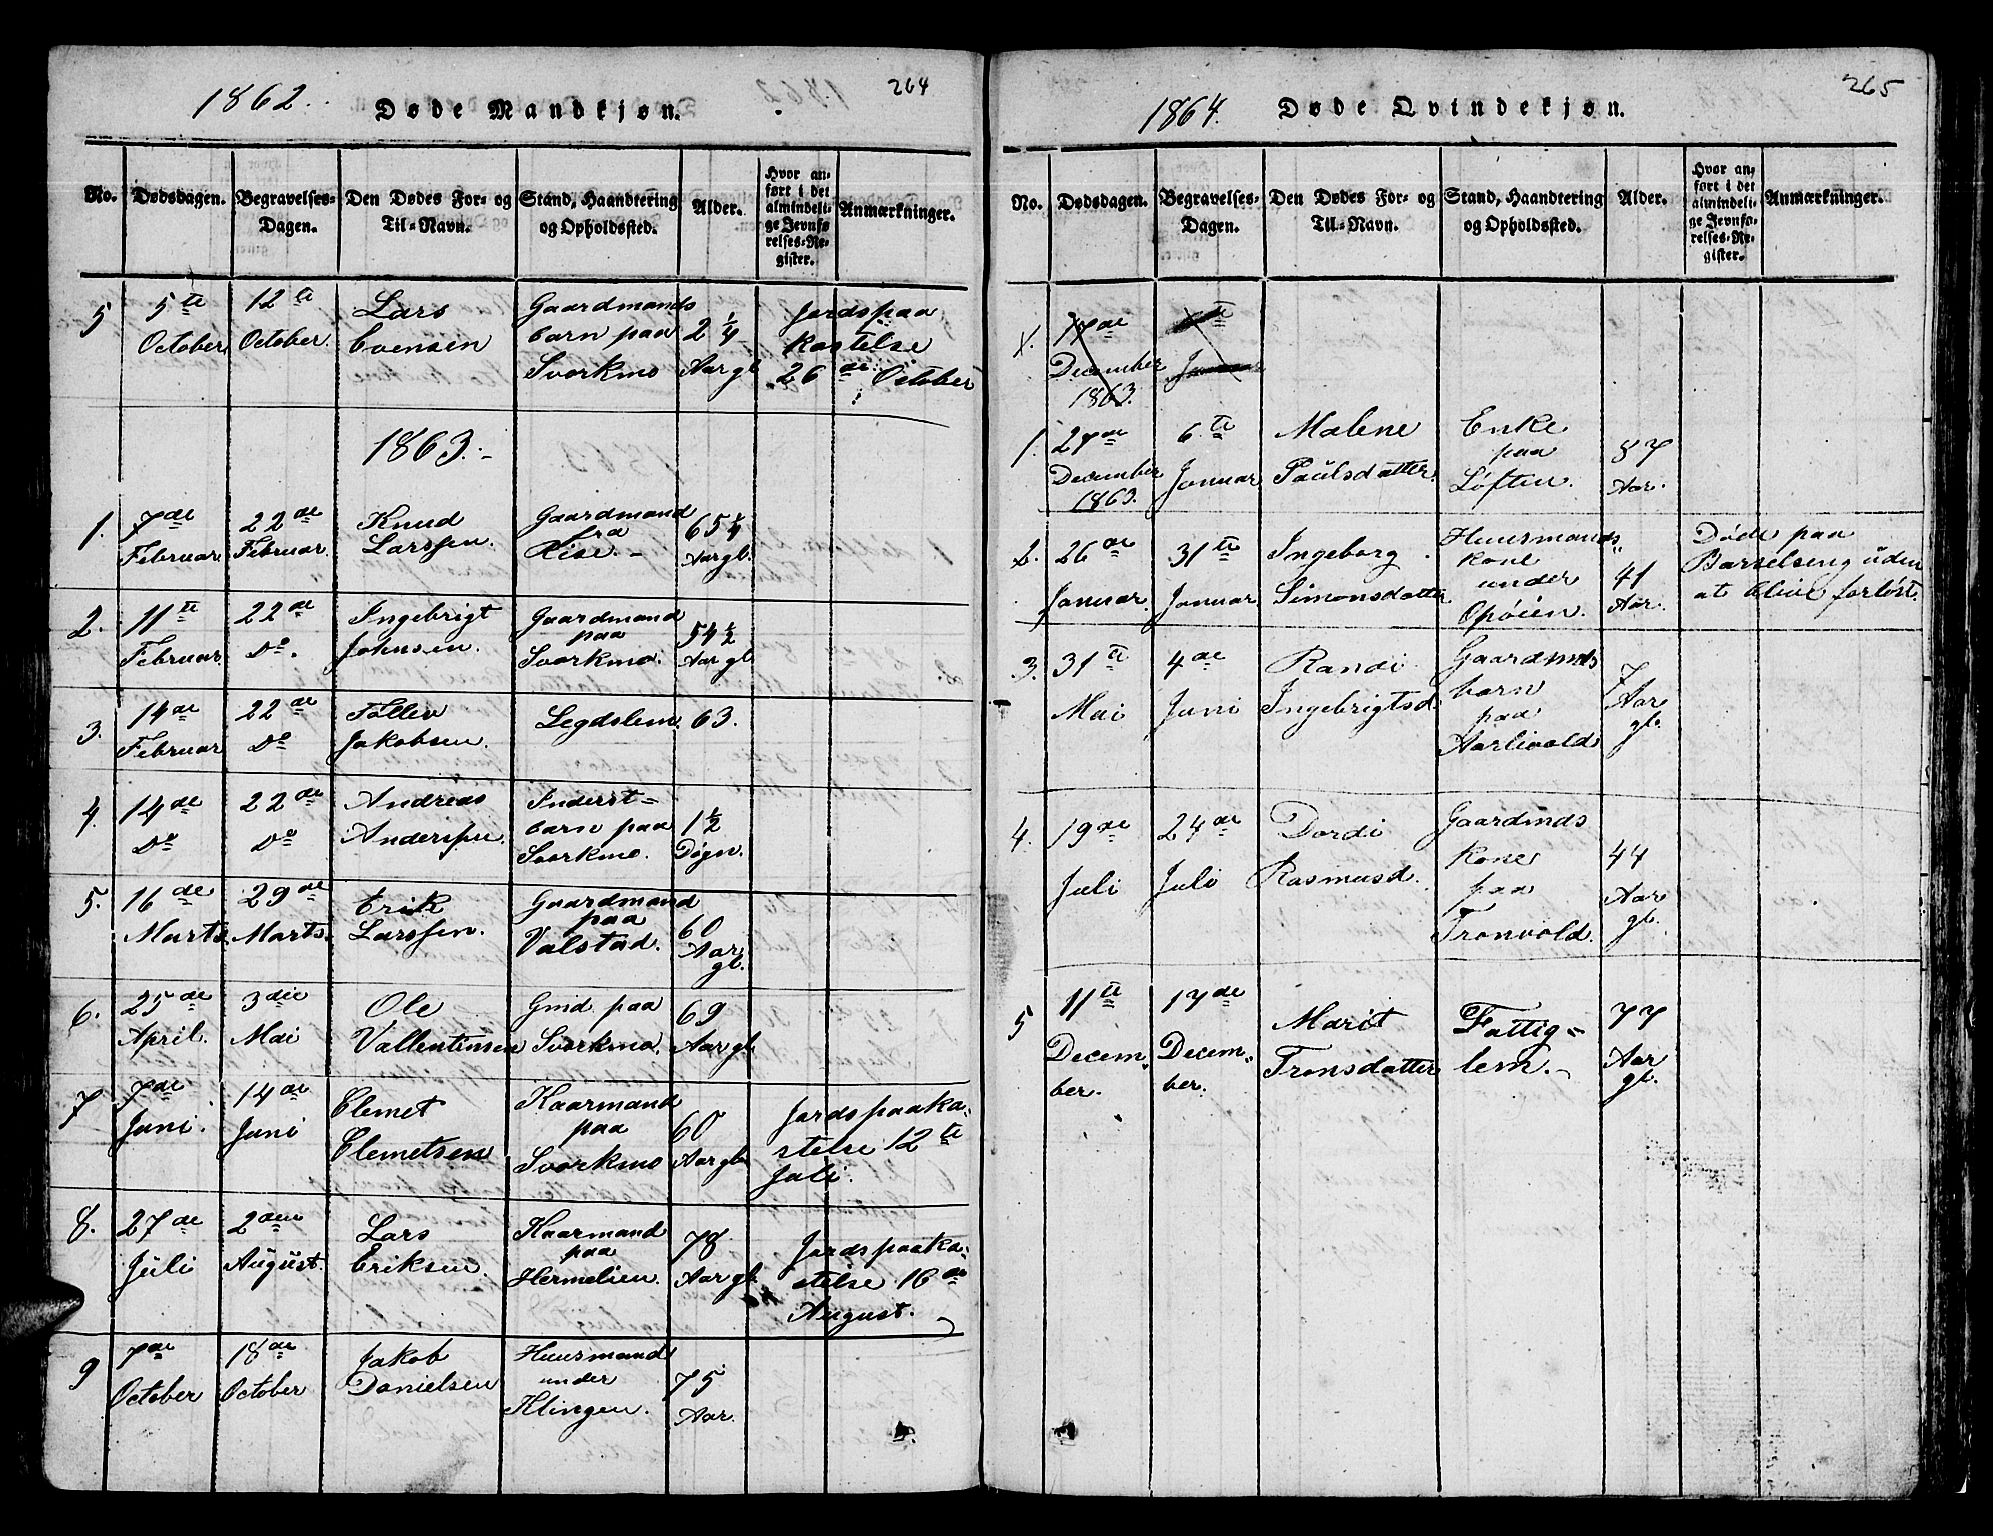 264
1862.
Døde Mandkjøn.
No.
Dødsdagen.
Begravelses-
Dagen.
Den Dødes For- og
Til-Navn.
Stand, Haandtering
og Opholdssted.
Alder.
Hvor an-
ført i det
almindeli-
ge Jevnfø-
relses-Re-
gister.
Anmærkninger.
5
5te
October
12te
October.
Lars
Evensen
Gaardmands
barn paa
Svorkmo
2 1/4
Aar gl
Jordspaa
kastelse
26de October
1863.
1.
7de
Februar
22de
Februar.
Knud
Larssen.
Gaardmand
fra
Rise.
65 1/4
Aar gl.
2.
11te
Februar
22de
Do.
Ingebrigt
Johnsen.
Gaardmand
paa
Svorkmo.
54 1/2
Aar gl.
3.
14de
Februar
22de
Do
Tollev
Jakobsen.
Legdslem.
63.
4.
14de
Do
22de
Do
Andreas
Anderssen.
Inderst=
barn paa
Svorkmo.
1 1/2
Døgn.
5.
16de
Marts.
29de
Marts.
Erik
Larssen.
Gaardmand
paa
Valstad.
60
Aar
gl.
6.
25de
April.
3die
Mai
Ole
Vallentinsen
Gmd paa
Svorkmo.
69
Aar gl.
7
7de
Juni.
14de
Juni
Clemet
Clemetsen
Kaarmand
paa
Svorkmo
60
Aar gl.
Jordspaaka=
stelse 12te
Juli.
8.
27de
Juli
2den
August.
Lars
Eriksen.
Kaarmand
paa
Hermelien.
78
Aar gl.
Jordspaaka=
stelse 16de
August.
9
7de
October
18de
October
Jakob
Danielsen
Huusmand
under
Klingen.
75
Aar.
265
1864.
Døde Qvindekjøn.
No.
Dødsdagen.
Begravelses-
Dagen.
Den Dødes For- og
Til-Navn.
Stand, Haandtering
og Opholdssted.
Alder.
Hvor an-
ført i det
almindeli-
ge Jevnfø-
relses-Re-
gister.
Anmærkninger.
1.
17de
December
1863.
6te
Januar
1.
27de
December
1863.
6te
Januar
Malene
Paulsdatter.
Enke
paa
Løften.
87
Aar.
2.
26de
Januar.
31te
Januar
Ingeborg
Simonsdatter
Huusmands
kone
under
Opøien.
41
Aar.
Døde paa
Barselseng uden
at blive forløst.
3.
31te
Mai
4de
Juni
Randi
Ingebrigtsd.
Gaardmds
barn
paa
Aarlivold
7
Aar
gl.
4.
19de
Juli
24de
Juli
Dordi
Rasmusd.
Gaardmds
kone
paa
Tronvold.
44
Aar
gl.
5
11te
Decem„
ber.
17de
Decem„
ber.
Marit
Tronsdatter
Fattig=
lem.
77
Aar
gl.